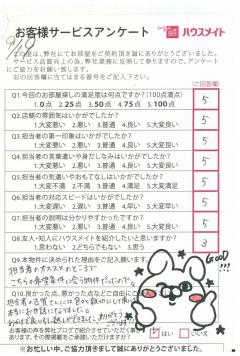 9/18
お客様サービスアンケート
ハウスメイト
この度は、弊社にてお部屋をご契約頂き誠にありがとうございました。
サービス品質向上の為、弊社業務に反映して参りますので、アンケート
にご協力をお願い致します。
右の回答欄に当てはまる番号をご記入下さい。
ご回答欄
Q1.今回のお部屋探しの満足度は何点ですか?(100点満点)
1.0点 2.25点 3.50点 4.75点 5.100点
5
Q2.店舗の雰囲気はいかがでしたか?
1.大変悪い 2.悪い 3.普通 4.良い 5.大変良い
5
Q3.担当者の第一印象はいかがでしたか?
1.大変悪い 2.悪い 3.普通 4.良い 5.大変良い
5
Q4.担当者の言葉遣いや身だしなみはいかがでしたか?
1.大変悪い 2.悪い 3.普通 4.良い 5.大変良い
5
Q5.担当者の気遣いやおもてなしはいかがでしたか?
1.大変不満 2.不満 3.普通 4.満足 5.大変満足
5
Q6.担当者の対応スピードはいかがでしたか?
1.大変遅い 2.遅い 3.普通 4.早い 5.大変早い
5
Q7.担当者の説明は分かりやすかったですか?
1.大変悪い 2.悪い 3.普通 4.良い 5.大変良い
5
Q8.友人・知人にハウスメイトを紹介したいと思いますか?
1.思わない 2.どちらでもない 3.思う
3
Q9.本物件に決められた理由をご記入願います。
担当者のオススメのところで
こちらの希望条件に合う物件だったので。
GOOD!!!
Q10.良かった点、悪かった点などご自由に
担当者の
本当にお世話になりました。
ありがとう
お客様の声を弊社ブログで紹介させていただく事
あります。その際掲載をご承諾いただけますか?
はい いいえ
お忙しい中、ご協力頂きまして誠にありがとうございました。